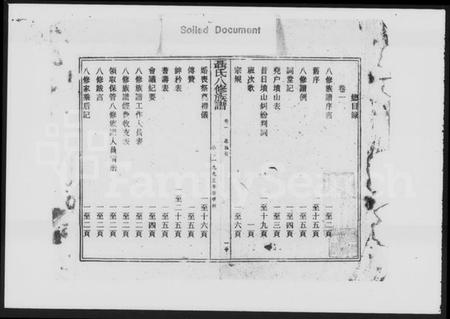 Soiled Document
總目錄
卷一
八修族譜序言 一至二頁
舊序 一至十五頁
八修譜例 一至五頁
詞堂記 一至四頁
堯戶墳山表 一至三頁
昔日墳山糾紛判詞 一至十九頁
班次歌 一頁
宗規 一至六頁
聶氏八修族譜
卷一
婚喪祭禮儀 一至十六頁
傳贊 一至五頁
齡秩表 一至二十五頁
耆壽表 一至五頁
會議紀要 一至四頁
八修族譜工作人員表 一至二頁
八修族譜經費收支表 一至二頁
領取保管八修族譜人員 一至二頁
八修跋言 一至二頁
八修家乘后記 一至二頁
FamilySearch